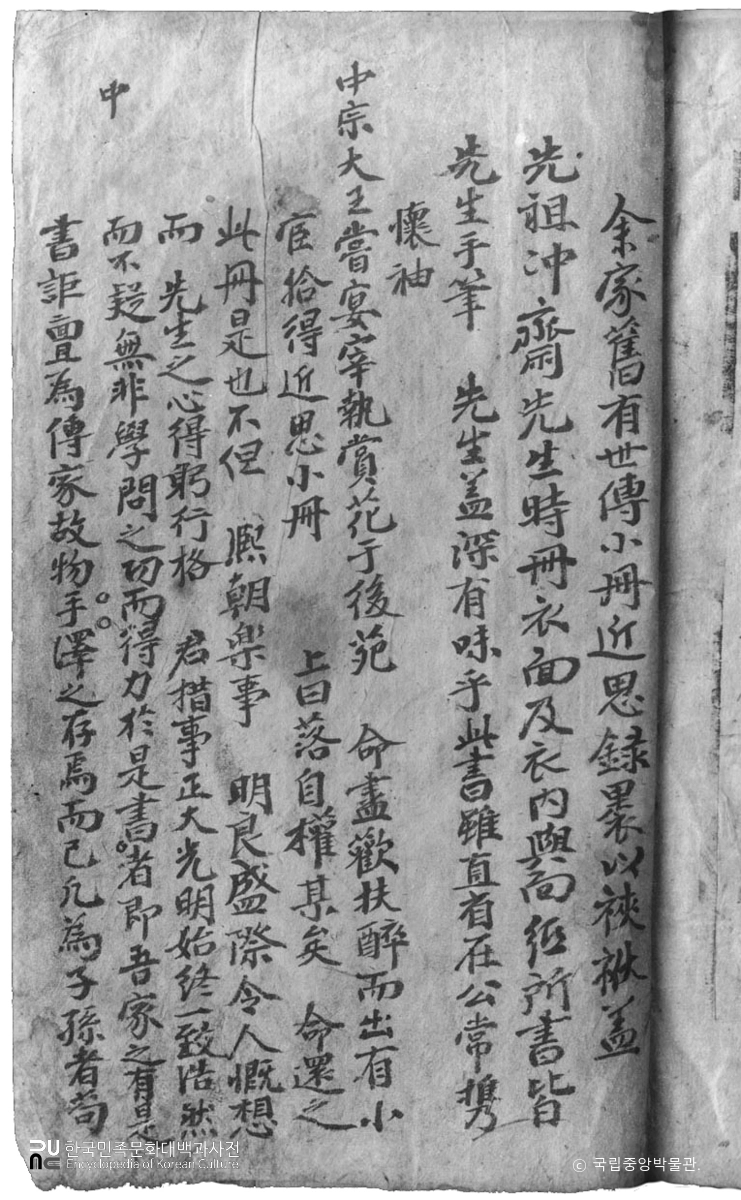 余家舊有世傳小冊近思録裹以裌袱盖
先祖冲齋先生時冊衣面及衣内與向紙所書皆
先生手筆 先生盖深有味乎此書雖直宿在公常携
懷袖
中宗大王嘗宴宰執賞花于後苑 命盡歡扶醉而出有小
宦拾得近思小冊 上曰落自權某矣 命還之
此冊是也不但 熈朝樂事 明良盛際令人慨想
而 先生之心得躬行格 君措事正大光明始終一致浩然
而不疑無非學問之功而得力於是書者即吾家之有是
書詎亶為傳家故物手澤之存焉而已凡為子孫者苟
中
한국민족문화대백과사전
Encyclopedia of Korean Culture
© 국립중앙박물관.